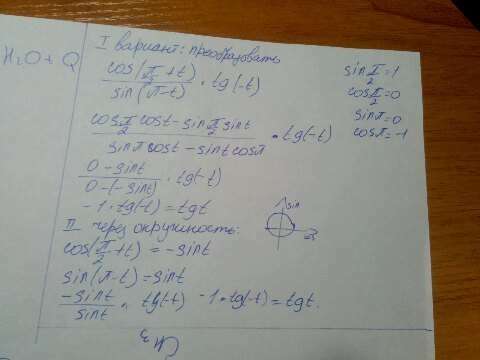 H₂O + Q
I вариант: преобразовать
cos(π/2 + t) / sin(π - t) · tg(-t)
sin π/2 = 1
cos π/2 = 0
sin π = 0
cos π = -1
cos π/2 cos t - sin π/2 sin t / sin π cos t - sin t cos π · tg(-t)
0 - sin t / 0 - (-sin t) · tg(-t)
-1 · tg(-t) = tg t
II через окружность:
sin
cos(π/2 + t) = -sin t
sin(π - t) = sin t
-sin t / sin t · tg(-t) -1 · tg(-t) = tg t.
CH₃